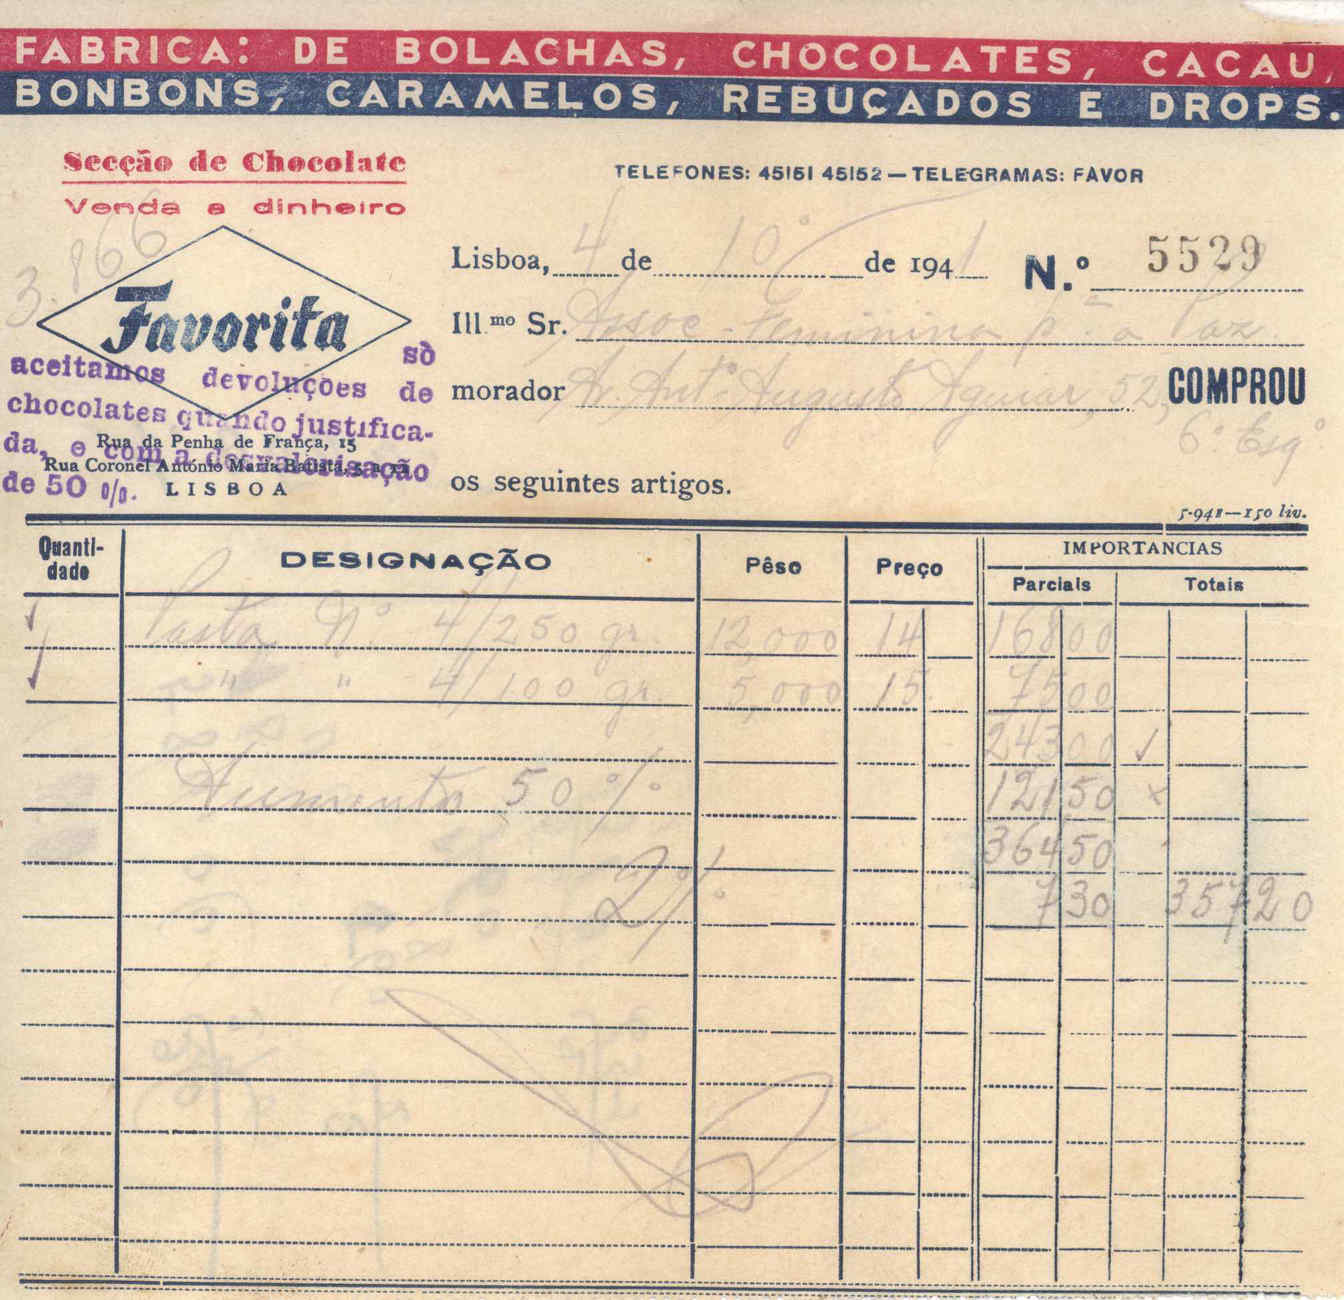 FABRICA: DE BOLACHAS, CHOCOLATES, CACAU,
BONBONS, CARAMELOS, REBUÇADOS E DROPS.
Secção de Chocolate
Venda a dinheiro
TELEFONES: 45151 45152 — TELEGRAMAS: FAVOR
3.866
Lisboa, 4 de 10º de 1941 N.º 5529
Favorita
Ill.mo Sr. Assoc. Feminina pª a Paz
morador Av. Antº Augusto Aguiar, 52, COMPROU
6º Esqº
só
aceitamos devoluções de
chocolates quando justifica-
da, e com a desvalorisação
de 50 o/o.
Rua da Penha de França, 15
Rua Coronel António Maria Batista,
LISBOA
os seguintes artigos.
5-941—150 liv.
Quanti-
dade
DESIGNAÇÃO Pêso Preço IMPORTANCIAS
Parciais Totais
Pasta Nº 4/250 gr. 12,000 14 168 00
" " 4/100 gr. 5,000 15 75 00
243 00
Aumento 50 % 121 50
364 50
2 % 7 30 357 20